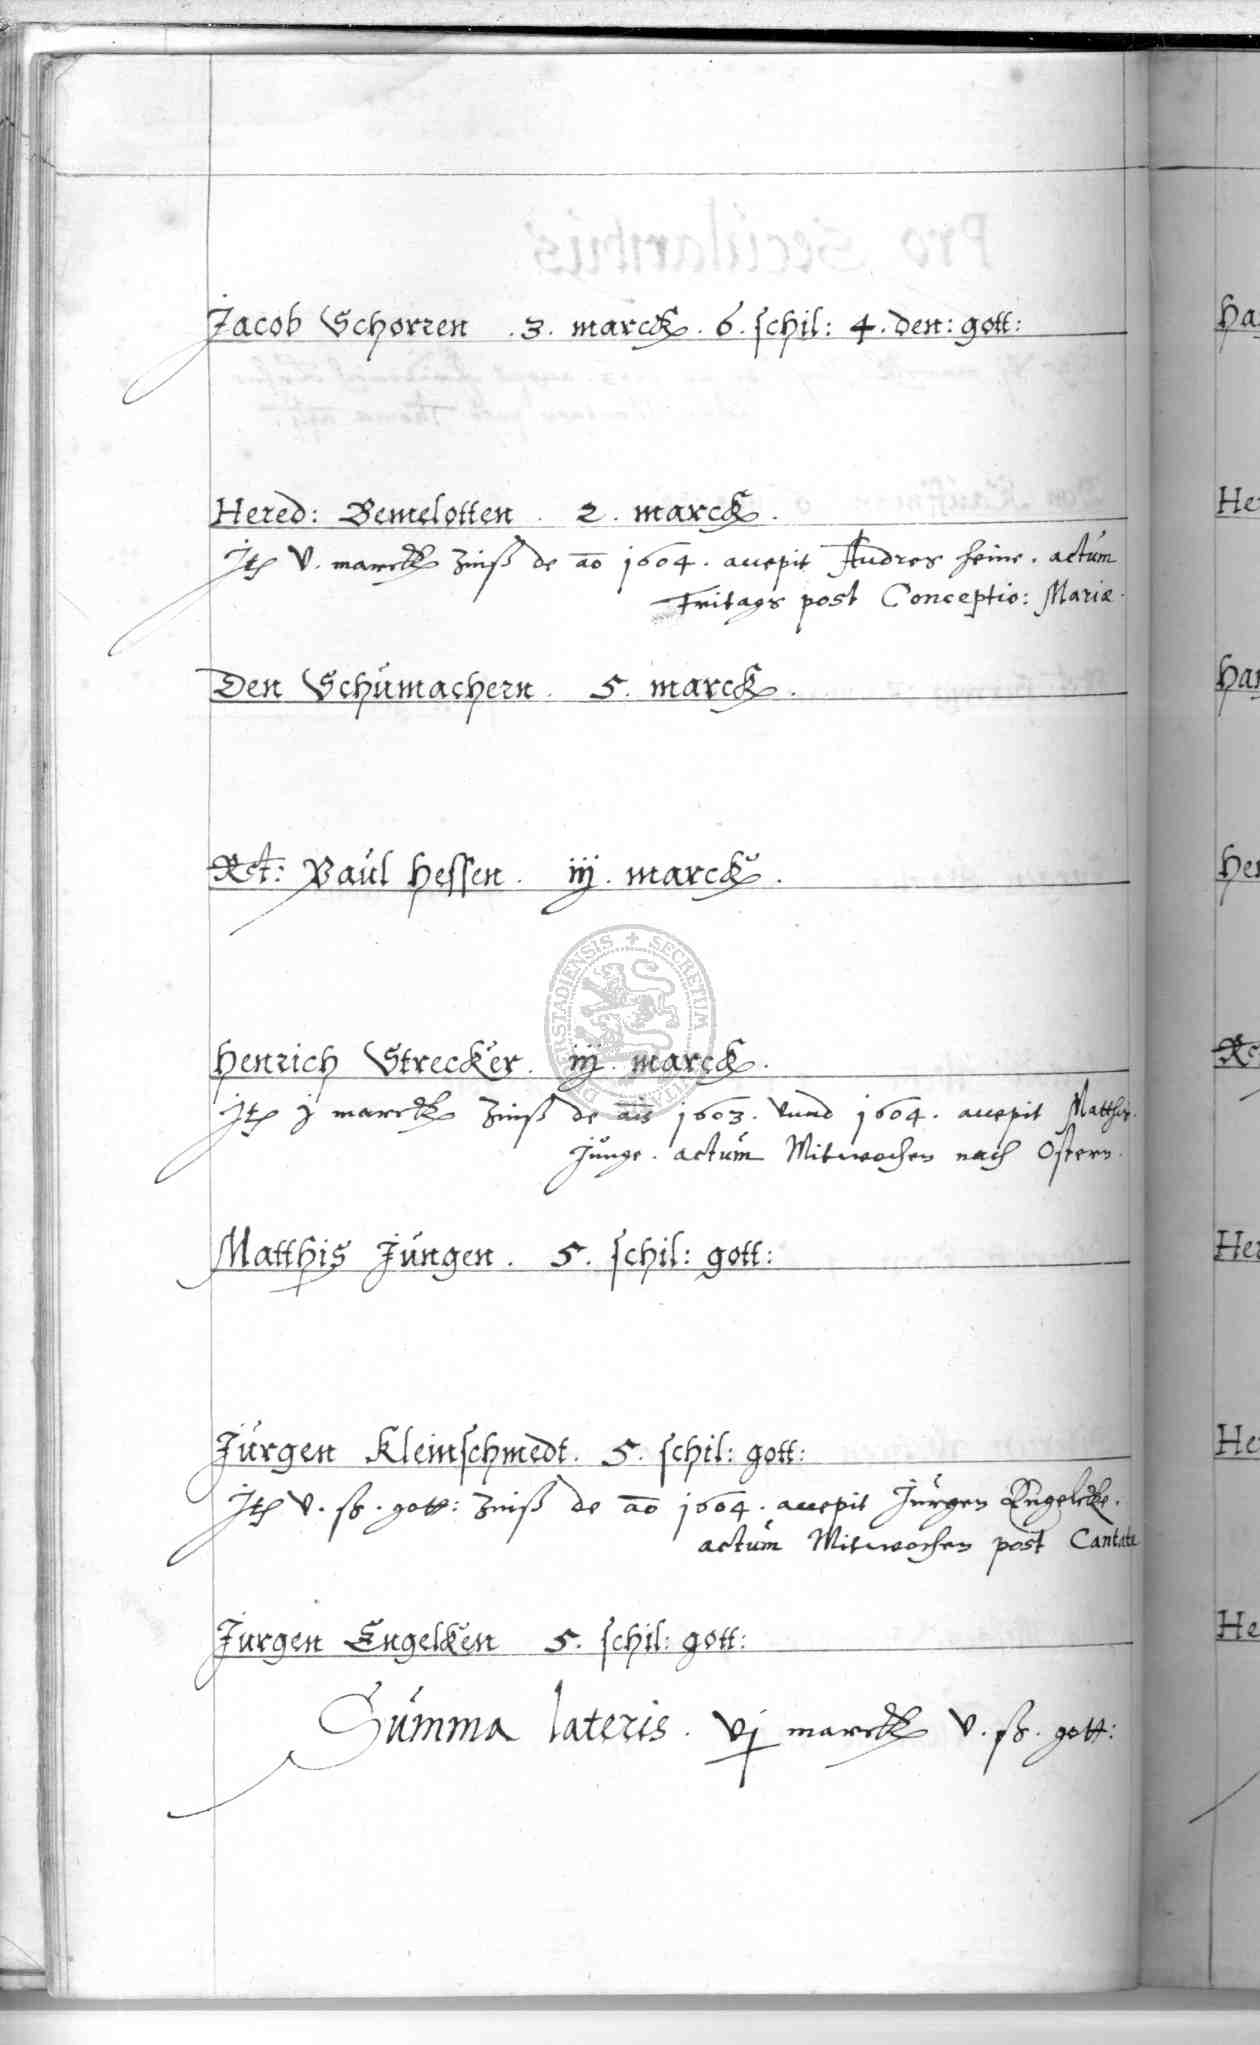 Jacob Schorren .3. marck. 6. schil: 4. den: gott:
Hered: Bemelotten. 2. marck.
Jtem V. marck Zinß de ao 1604. accepit Andres Heine. actum
Fritags post Conceptio: Mariæ.
Den Schumachern. 5. marck.
Rct: Paul Hessen. iij. marck.
Henrich Strecker. iij. marck.
Jtem j marck Zinß de ais 1603. vnnd 1604. accepit Matthis
Junge. actum Mitwochen nach Ostern.
Matthis Jungen. 5. schil: gott:
Jurgen Kleinschmedt. 5. schil: gott:
Jtem V. ß. gott: Zinß de ao 1604. accepit Jurgen Engelcke.
actum Mitwochen post Cantate
Jurgen Engelken 5. schil: gott:
Summa lateris. Vj marck V. ß. gott: